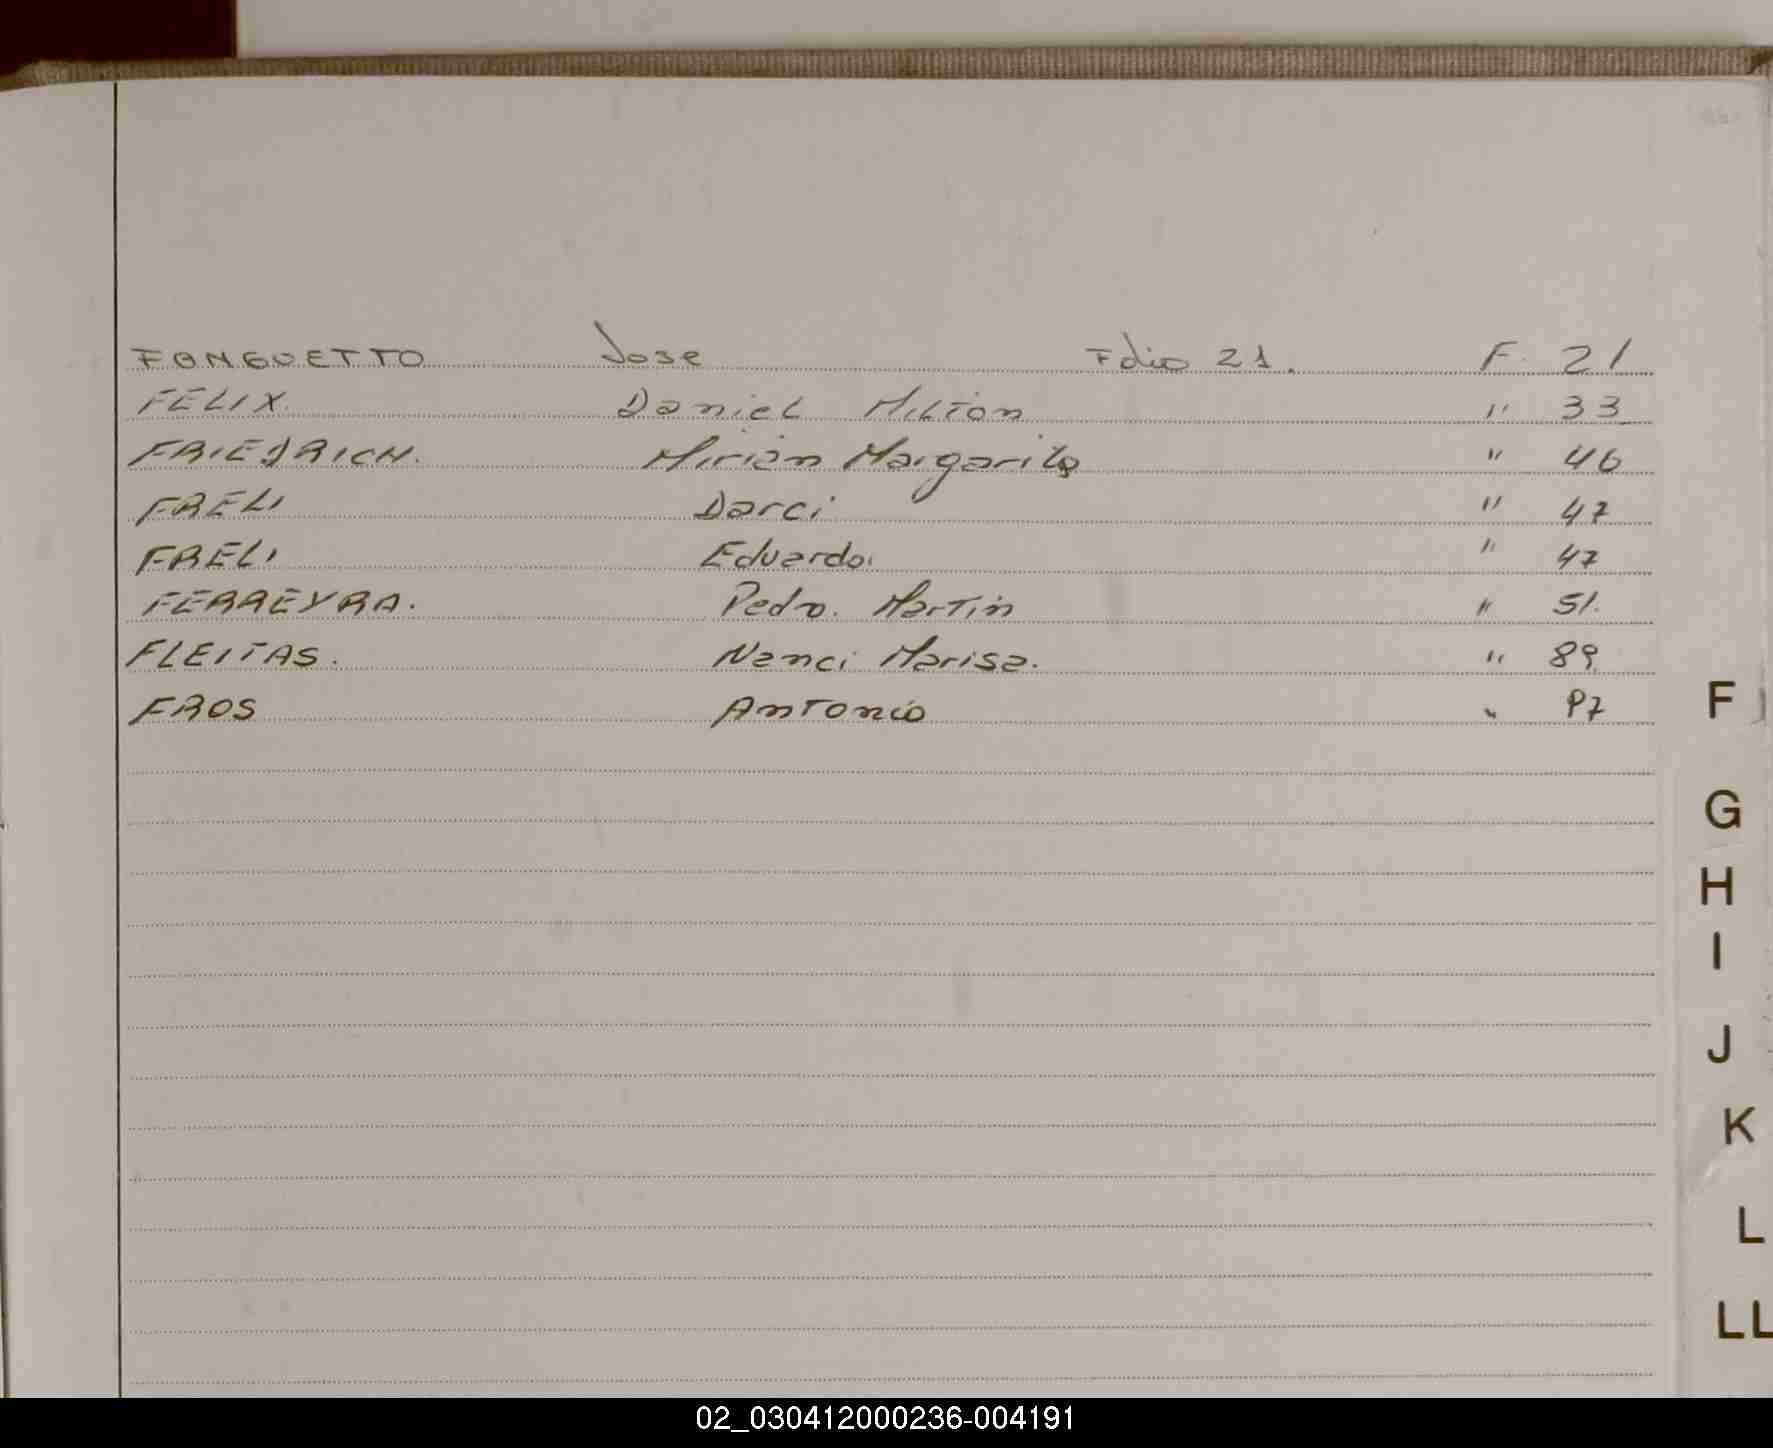 FONGUETTO Jose Folio 21. F. 21
FELIX. Daniel Milton " 33
FRIEDRICH. Mirian Margarita " 46
FRELI Darci " 47
FRELI Eduardo. " 47
FERREYRA. Pedro. Martin " 51.
FLEITAS. Nanci Marisa. " 89.
FROS Antonio " 97
F
G
H
I
J
K
L
LL
02_030412000236-004191